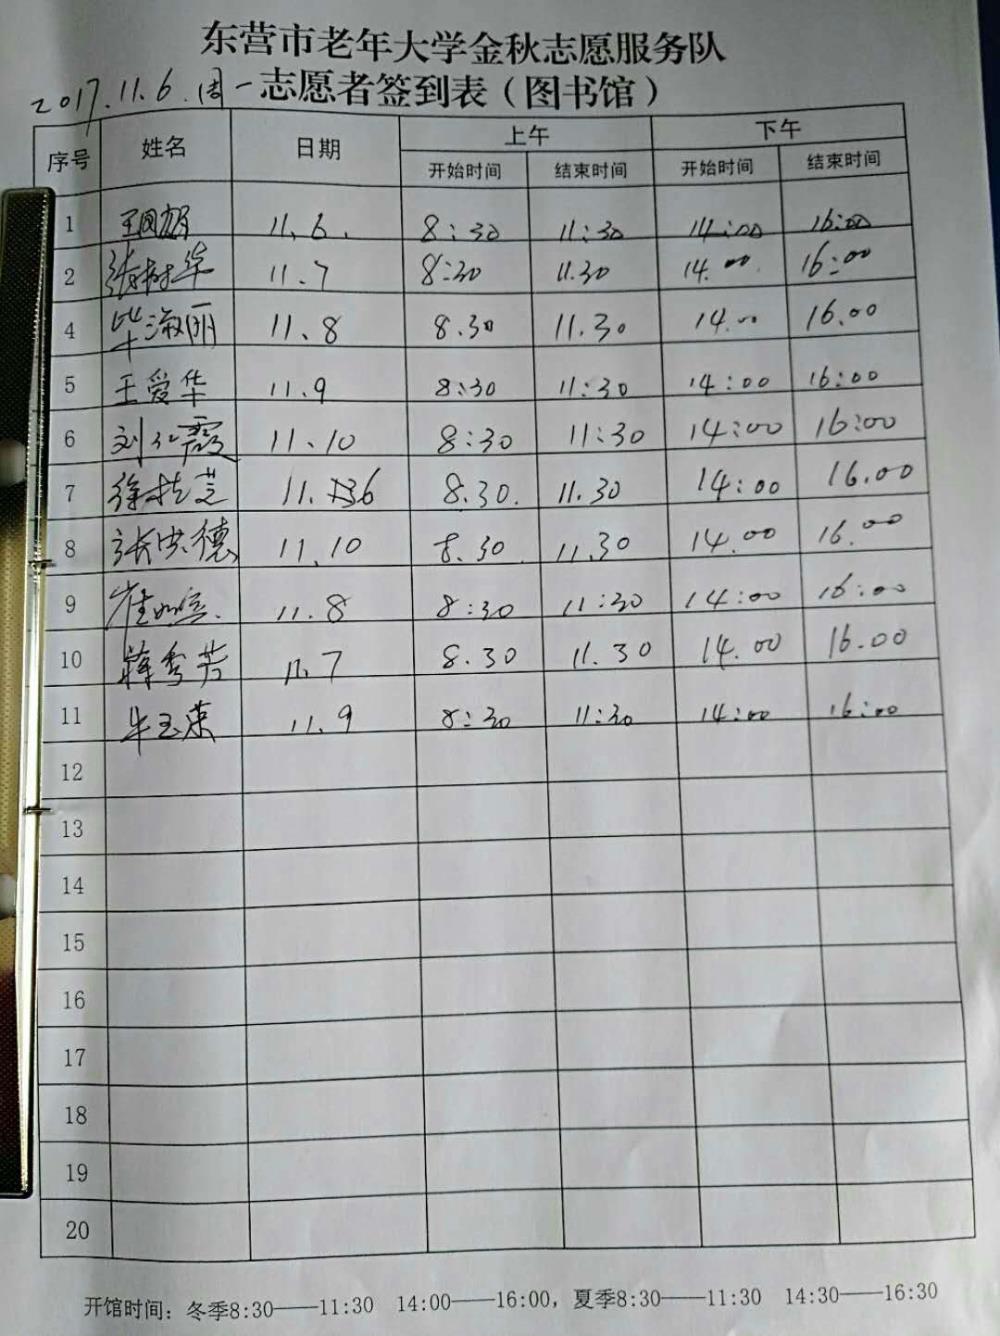 东营市老年大学金秋志愿服务队
2017.11.6.周一 志愿者签到表（图书馆）
序号 姓名 日期 上午 下午
开始时间 结束时间 开始时间 结束时间
1 11.6. 8:30 11:30 14:00 16:00
2 张树华 11.7 8:30 11.30 14.00. 16:00
4 毕淑丽 11.8 8.30 11.30 14.00 16.00
5 王爱华 11.9 8:30 11:30 14:00 16:00
6 刘仁霞 11.10 8:30 11:30 14:00 16:00
7 徐桂芝 11.6 8.30. 11.30 14:00 16.00
8 张忠德 11.10 8.30 11.30 14.00 16.00
9 崔 11.8 8:30 11:30 14:00 16:00
10 薛秀芳 11.7 8.30 11.30 14.00 16.00
11 牛玉荣 11.9 8:30 11:30 14:00 16:00
12
13
14
15
16
17
18
19
20
开馆时间：冬季8:30——11:30 14:00——16:00，夏季8:30——11:30 14:30——16:30